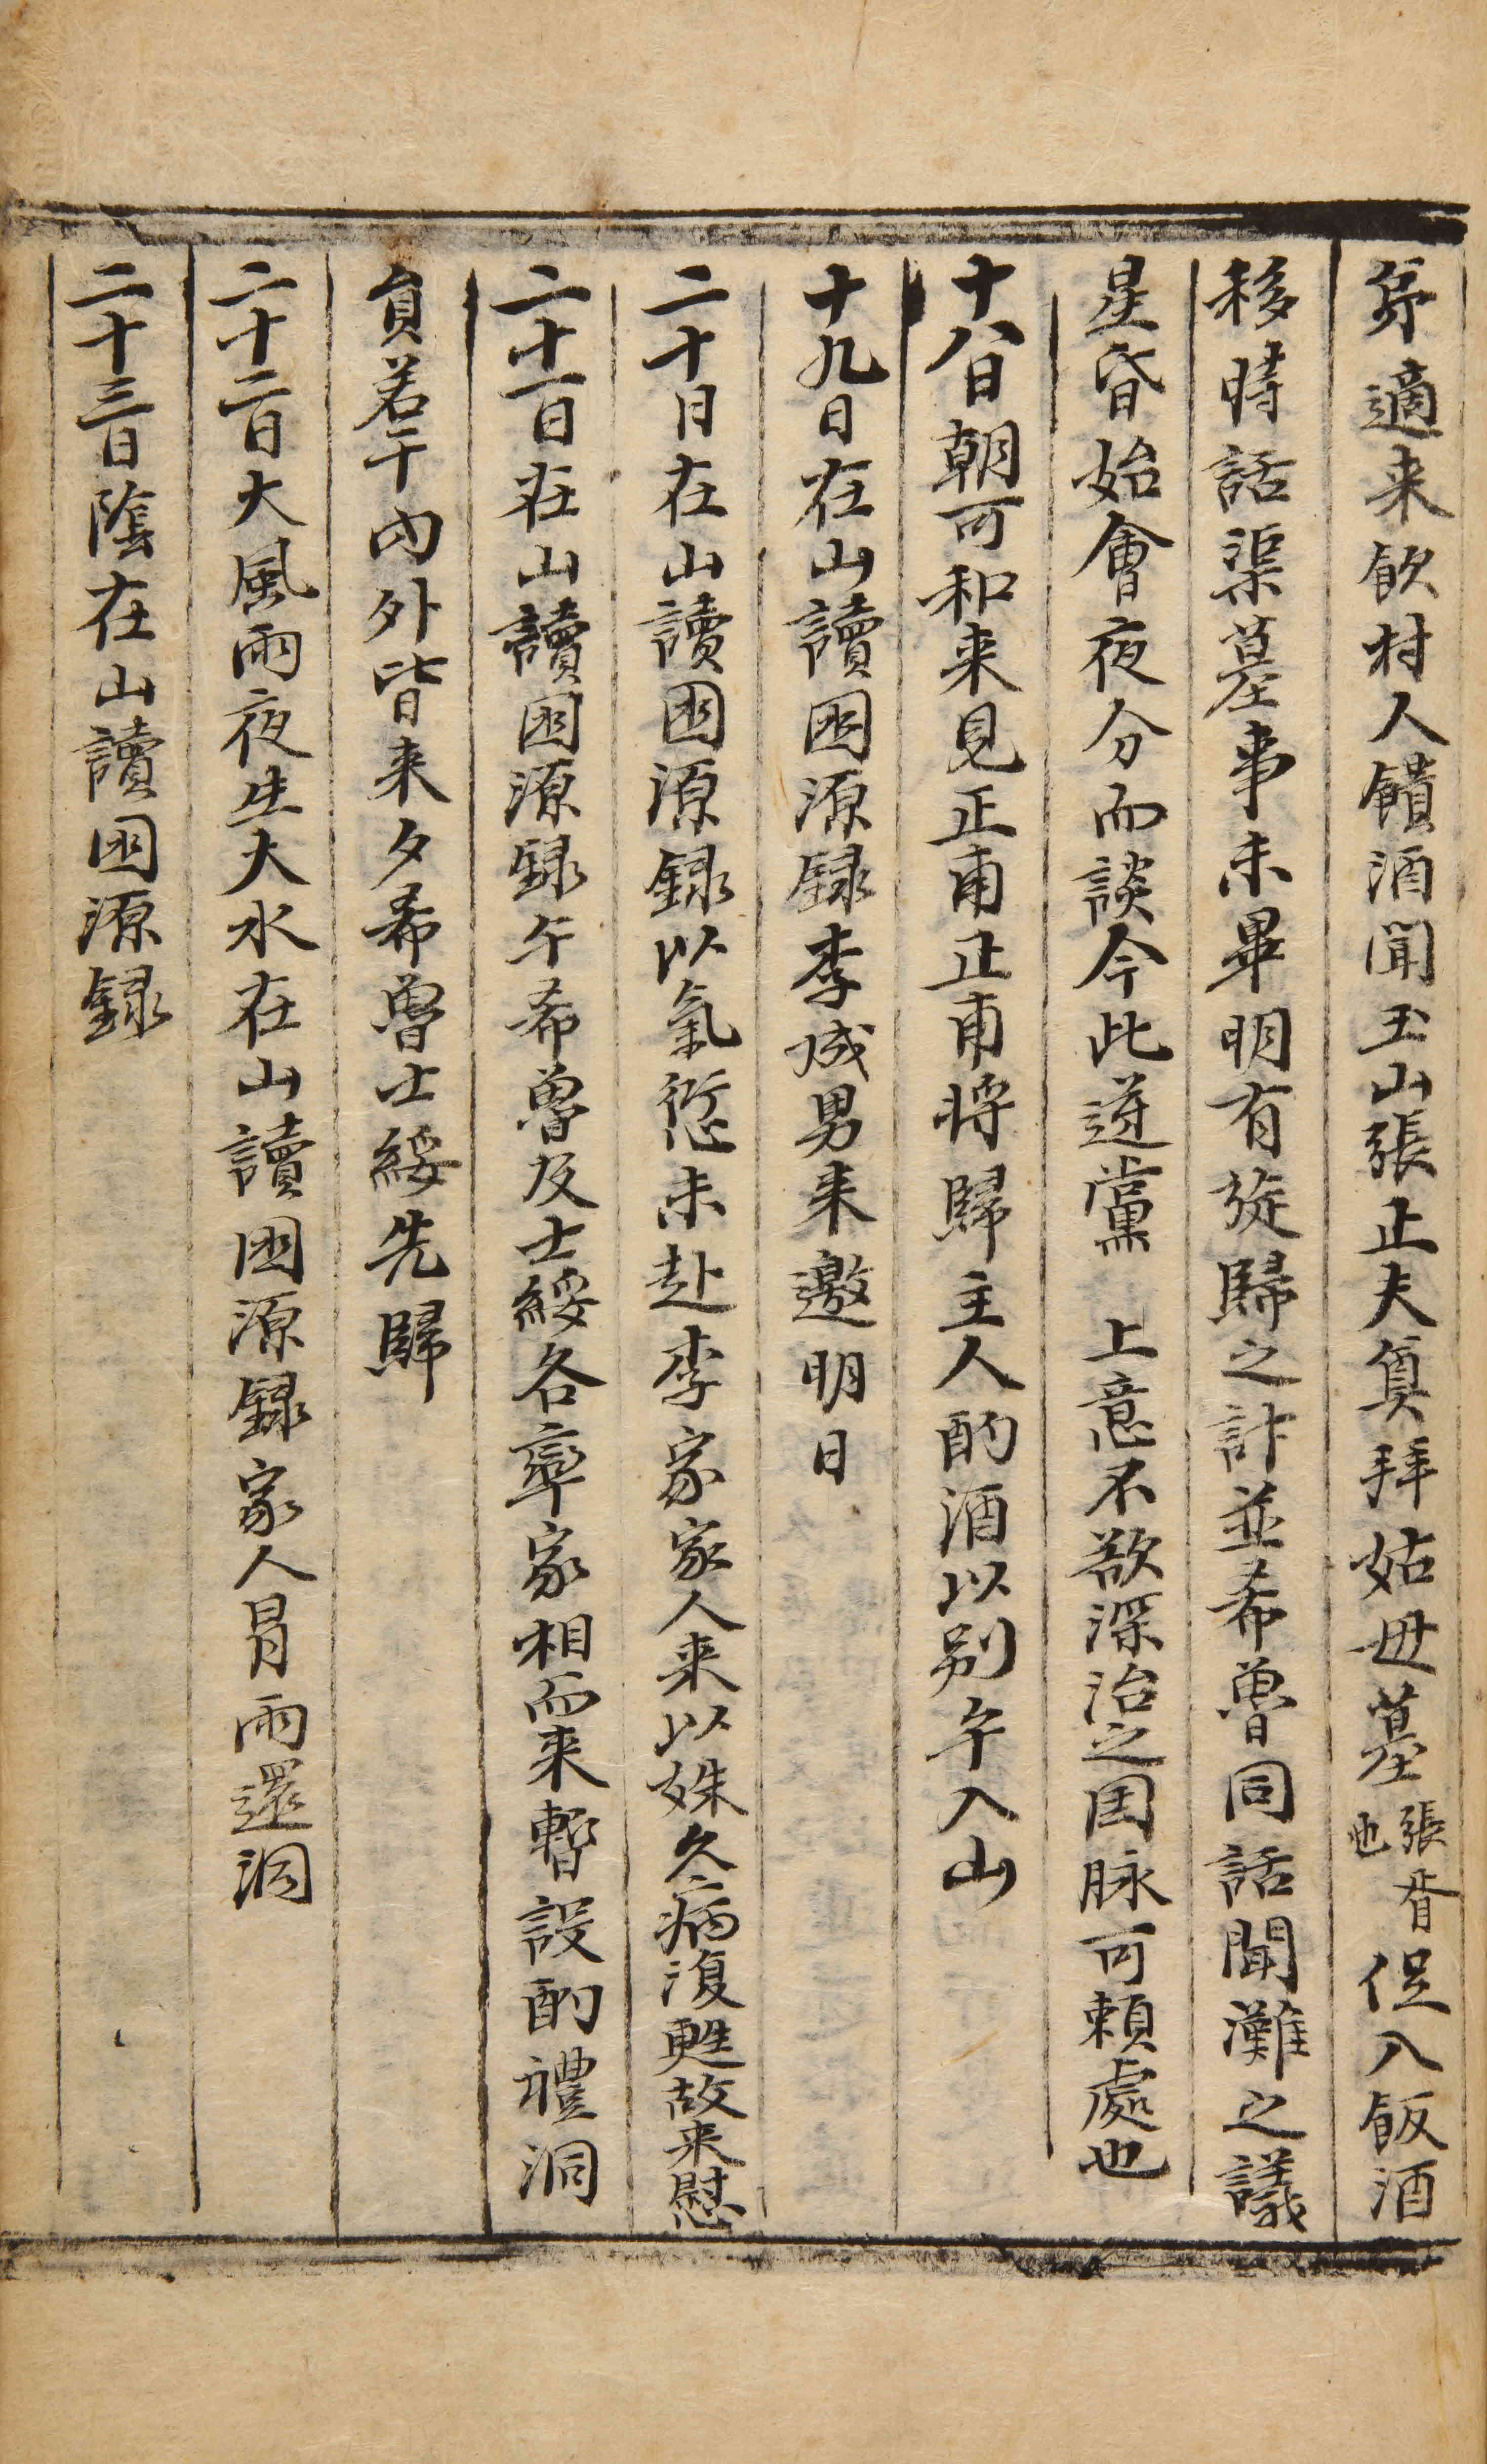 弟適来飲村人饋酒聞玉山張正夫奠拜姑母墓張胥也促入飯酒
移時話渠墓事未畢明有旋歸之計並希魯同話聞灘之議
星昏始會夜分而談今此逆黨　上意不欲深治之国脉可賴處也
十八日朝可和来見正甫正甫将歸主人酌酒以別午入山
十九日在山讀困源録李成男来邀明日
二十日在山讀困源録以氣愆未赴李家家人来以姝久病復甦故来慰
二十一日在山讀困源録午希魯及士綏各率家相而来暫設酌禮洞
員若干內外皆来夕希魯士綏先歸
二十二日大風雨夜生大水在山讀困源録家人冒雨還洞
二十三日陰在山讀困源録